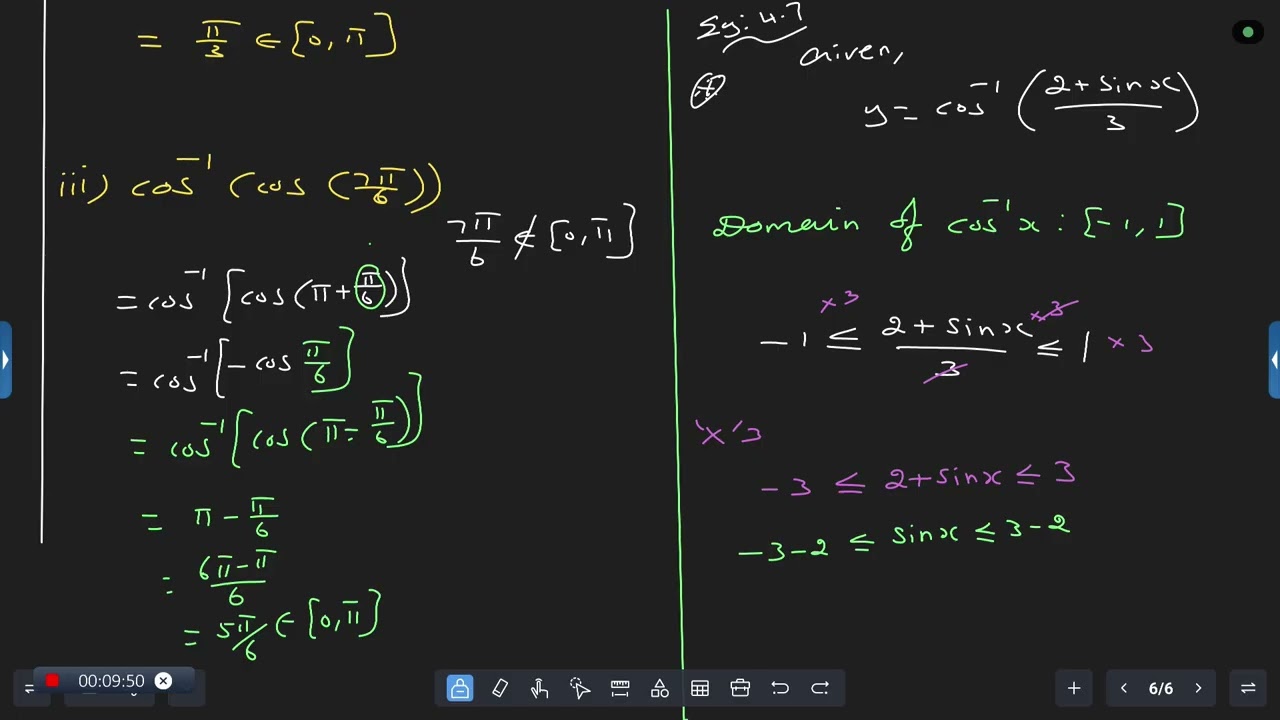 = π/3 ∈ [0, π]
iii) cos⁻¹ (cos (7π/6))
7π/6 ∉ [0, π]
= cos⁻¹ [cos (π + π/6)]
= cos⁻¹ [- cos π/6]
= cos⁻¹ [cos (π - π/6)]
= π - π/6
= (6π - π)/6
= 5π/6 ∈ [0, π]
Eg: 4.7
Given,
y = cos⁻¹ ((2 + sinx)/3)
Domain of cos⁻¹x : [-1, 1]
×3 ×3
-1 ≤ (2 + sinx)/3 ≤ 1 ×3
'×'3
-3 ≤ 2 + sinx ≤ 3
-3-2 ≤ sinx ≤ 3-2
00:09:50
6/6